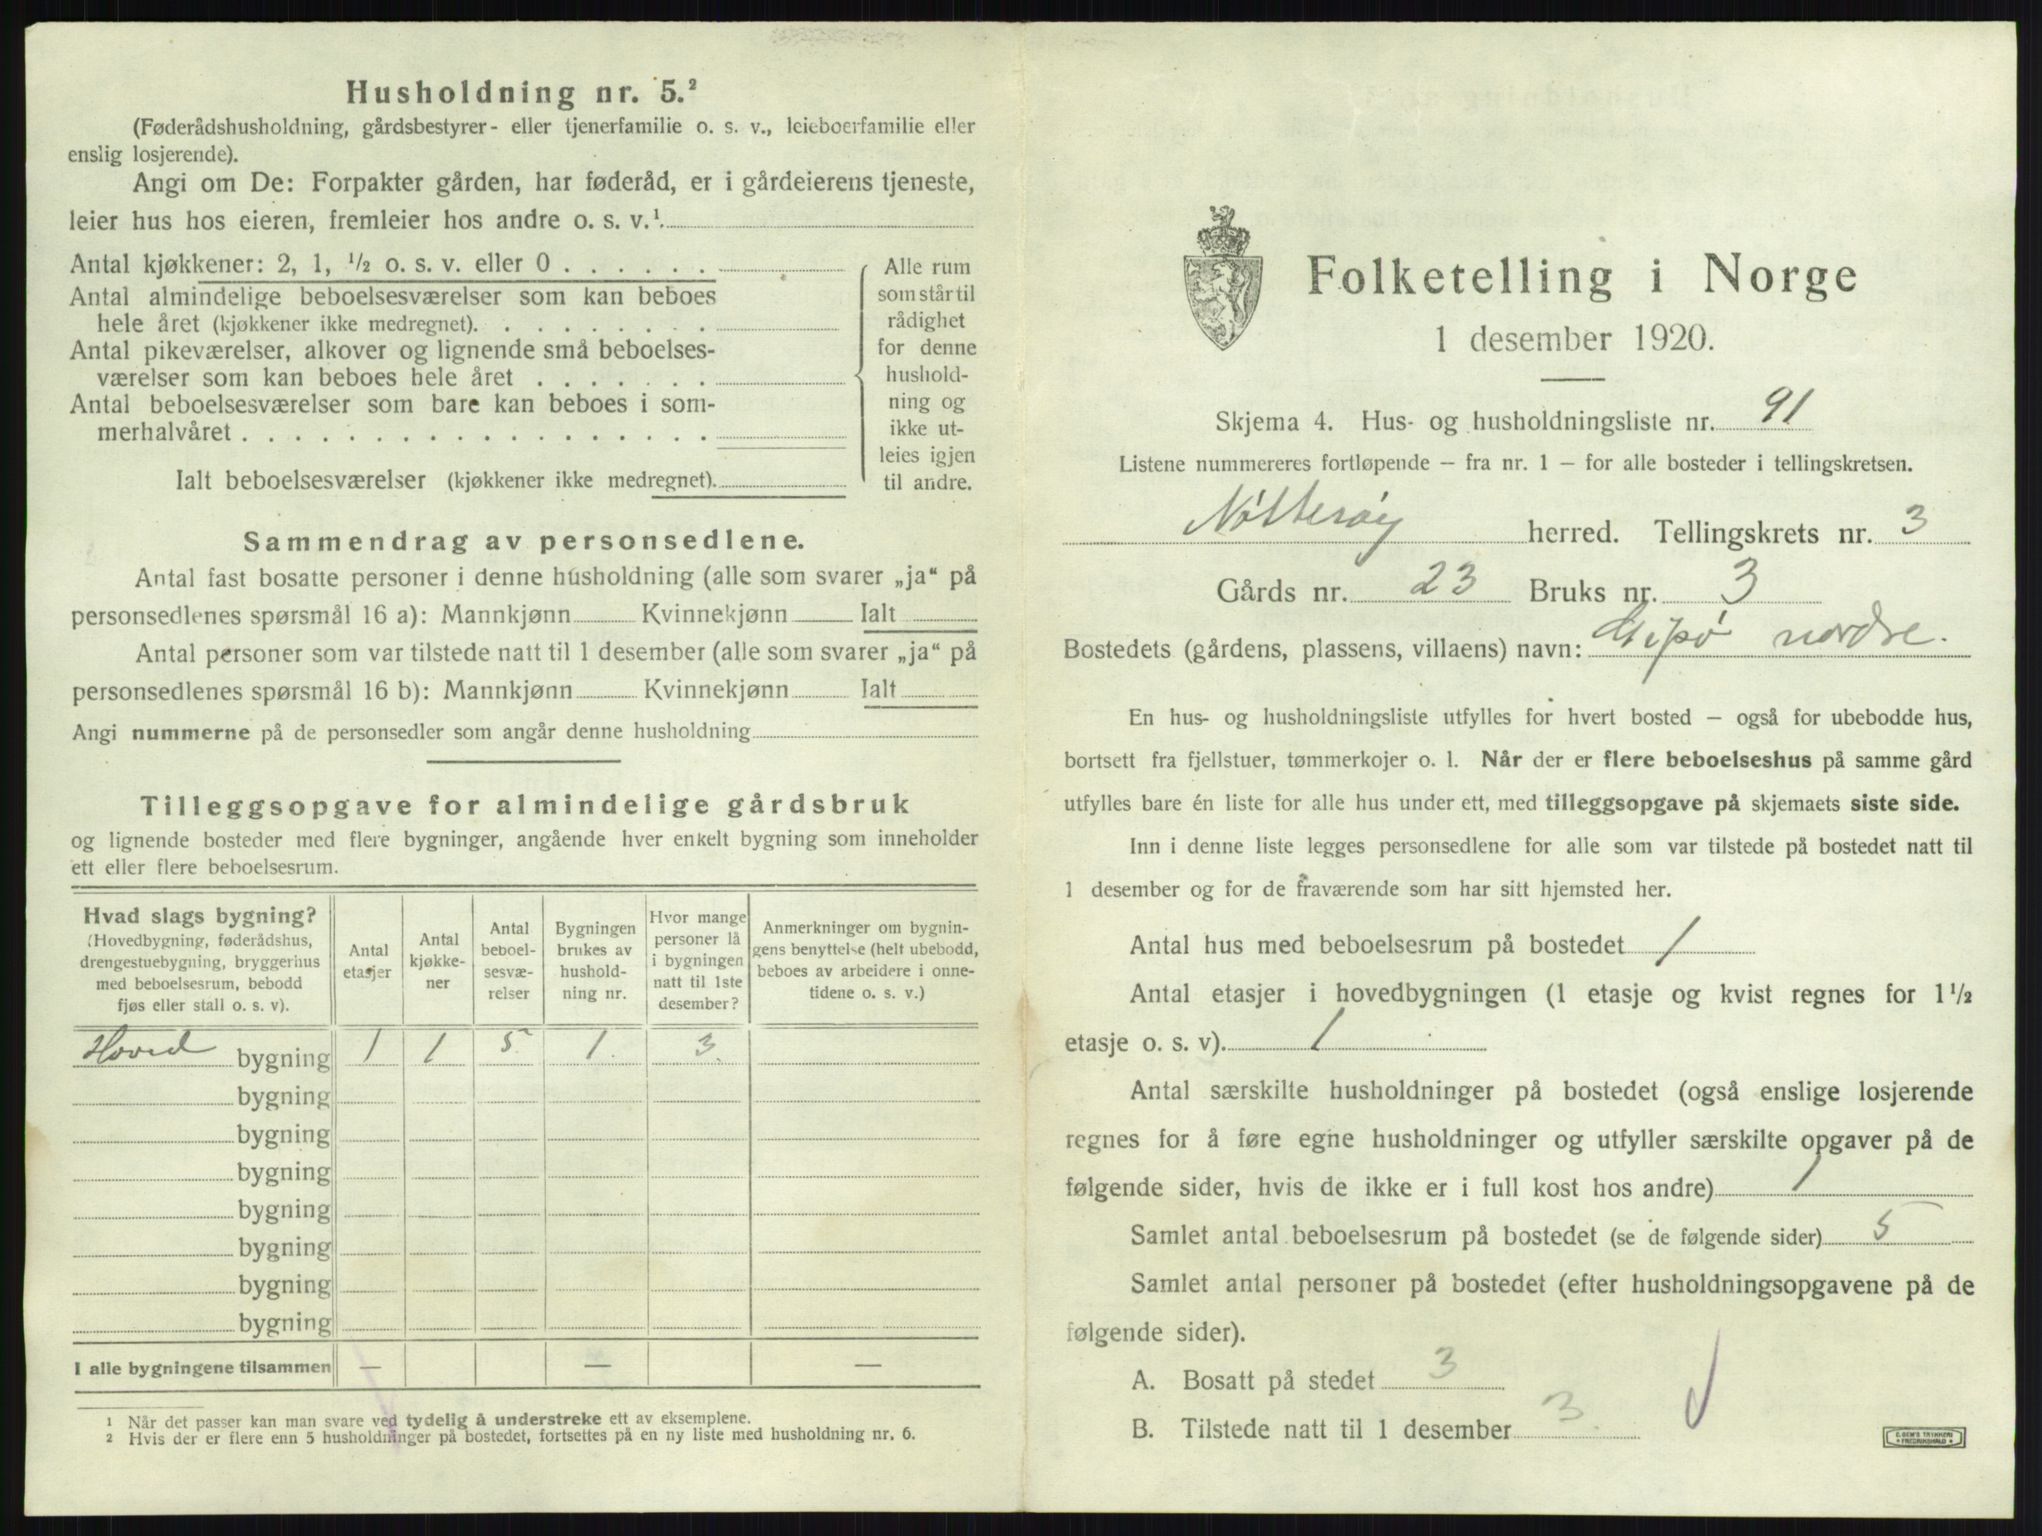 Husholdning nr. 5.²
(Føderådshusholdning, gårdsbestyrer- eller tjenerfamilie o. s. v., leieboerfamilie eller
enslig losjerende).
Angi om De: Forpakter gården, har føderåd, er i gårdeierens tjeneste,
leier hus hos eieren, fremleier hos andre o. s. v.¹.
Antal kjøkkener: 2, 1, ½ o. s. v. eller 0 . . . . . .
Antal almindelige beboelsesværelser som kan beboes
hele året (kjøkkener ikke medregnet). . . . . . . . .
Antal pikeværelser, alkover og lignende små beboelses-
værelser som kan beboes hele året . . . . . . .
Antal beboelsesværelser som bare kan beboes i som-
merhalvåret . . . . . . . . . . . . . . . . . .
Ialt beboelsesværelser (kjøkkener ikke medregnet).
Alle rum
som står til
rådighet
for denne
hushold-
ning og
ikke ut-
leies igjen
til andre.
Sammendrag av personsedlene.
Antal fast bosatte personer i denne husholdning (alle som svarer „ja“ på
personsedlenes spørsmål 16 a): Mannkjønn Kvinnekjønn Ialt
Antal personer som var tilstede natt til 1 desember (alle som svarer „ja“ på
personsedlenes spørsmål 16 b): Mannkjønn Kvinnekjønn Ialt
Angi nummerne på de personsedler som angår denne husholdning
Tilleggsopgave for almindelige gårdsbruk
og lignende bosteder med flere bygninger, angående hver enkelt bygning som inneholder
ett eller flere beboelsesrum.
Hvad slags bygning?
(Hovedbygning, føderådshus,
drengestuebygning, bryggerhus
med beboelsesrum, bebodd
fjøs eller stall o. s. v).
Antal
etasjer
Antal
kjøkke-
ner
Antal
beboel-
sesvæ-
relser
Bygningen
brukes av
hushold-
ning nr.
Hvor mange
personer lå
i bygningen
natt til 1ste
desember?
Anmerkninger om bygnin-
gens benyttelse (helt ubebodd,
beboes av arbeidere i onne-
tidene o. s. v.)
Hoved bygning 1 1 5 1. 3.
bygning
bygning
bygning
bygning
bygning
bygning
bygning
I alle bygningene tilsammen — — —
1 Når det passer kan man svare ved tydelig å understreke ett av eksemplene.
2 Hvis der er flere enn 5 husholdninger på bostedet, fortsettes på en ny liste med husholdning nr. 6.
Folketelling i Norge
1 desember 1920.
Skjema 4. Hus- og husholdningsliste nr. 91
Listene nummereres fortløpende – fra nr. 1 – for alle bosteder i tellingskretsen.
Nøtterøy herred. Tellingskrets nr. 3
Gårds nr. 23 Bruks nr. 3
Bostedets (gårdens, plassens, villaens) navn: Gipø nordre.
En hus- og husholdningsliste utfylles for hvert bosted – også for ubebodde hus,
bortsett fra fjellstuer, tømmerkojer o. l. Når der er flere beboelseshus på samme gård
utfylles bare én liste for alle hus under ett, med tilleggsopgave på skjemaets siste side.
Inn i denne liste legges personsedlene for alle som var tilstede på bostedet natt til
1 desember og for de fraværende som har sitt hjemsted her.
Antal hus med beboelsesrum på bostedet 1
Antal etasjer i hovedbygningen (1 etasje og kvist regnes for 1½
etasje o. s. v). 1
Antal særskilte husholdninger på bostedet (også enslige losjerende
regnes for å føre egne husholdninger og utfyller særskilte opgaver på de
følgende sider, hvis de ikke er i full kost hos andre) 1
Samlet antal beboelsesrum på bostedet (se de følgende sider) 5
Samlet antal personer på bostedet (efter husholdningsopgavene på de
følgende sider).
A. Bosatt på stedet 3
B. Tilstede natt til 1 desember 3.